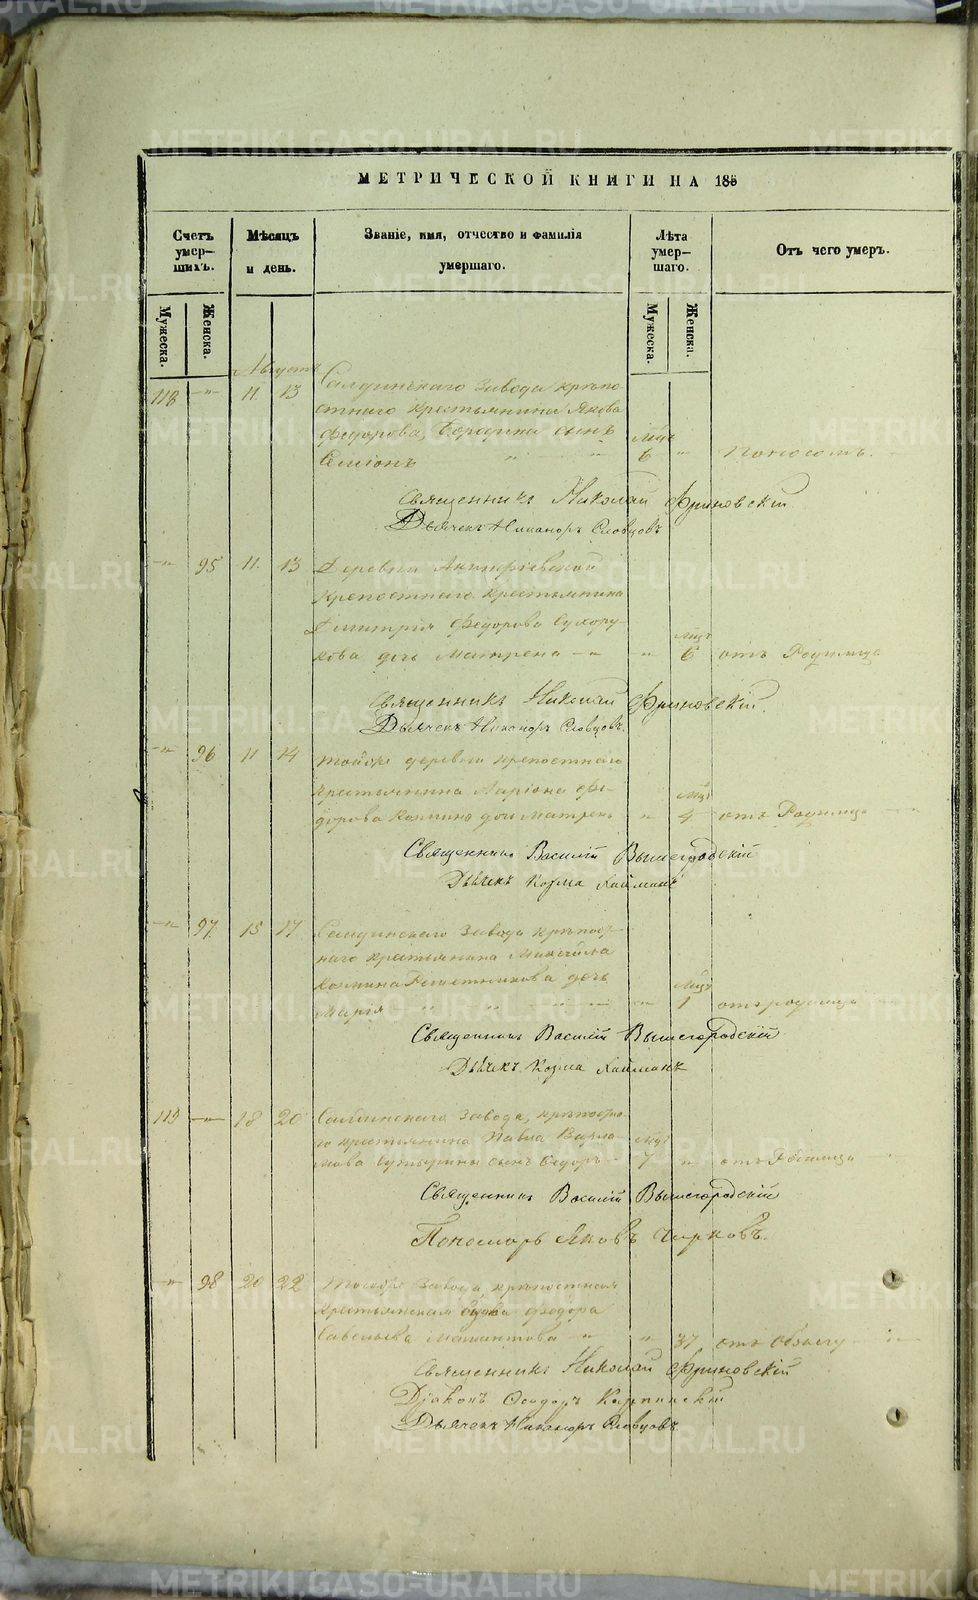 МЕТРИЧЕСКОЙ КНИГИ НА 185
Счетъ умер-шихъ.
Мѣсяцъ и день.
Званіе, имя, отчество и фамилія умершаго.
Лѣта умер-шаго.
Отъ чего умеръ.
Мужеска.
Женска.
Мужеска.
Женска.
Августъ
118 -"- 11. 13 Салдинскаго завода крѣпо-
стнаго крестьянина Якова
Федорова, сынъ Мцъ
Семіонъ " " 6 " Поносомъ.
Священникъ Николай Фриновскій
Дьячекъ Никаноръ Словцовъ
-"- 95 11. 13 Деревни Акинфіевской
крепостнаго крестьянина
Дмитрія Федорова Сухору-
кова дочь Матрена -"- " Мцъ 6 отъ Родимца
Священникъ Николай Фриновскій.
Дьячекъ Никаноръ Словцовъ.
-"- 96 11 14 тойже деревни крепостнаго
крестьянина Ларіона Фе-
дорова дочь Матрена " Мцъ 4 отъ Родимца
Священникъ Василій Вышегородскій
Дьячекъ Козма
-"- 97. 15 17 Салдинскаго завода крѣпост-
наго крестьянина Михайла
Козмина Решетникова дочь
Марія " " " Мцъ 1 отъ родимца
Священникъ Василій Вышегородскій
Дьячекъ Козма
119 -"- 18 20 Салдинскаго завода, крѣпостна-
го крестьянина Павла Варла-
мова сынъ Федоръ Мцъ 7 " отъ Родимца
Священникъ Василій Вышегородскій
Пономарь Яковъ Чирковъ.
-"- 98 20 22 Тогоже завода, крѣпостная
крестьянская Федора
Савельева " " 37 отъ
Священникъ Николай Фриновскій
Діаконъ Ѳеодоръ Карпинскій
Дьячекъ Никаноръ Словцовъ.
METRIKI.GASO-URAL.RU